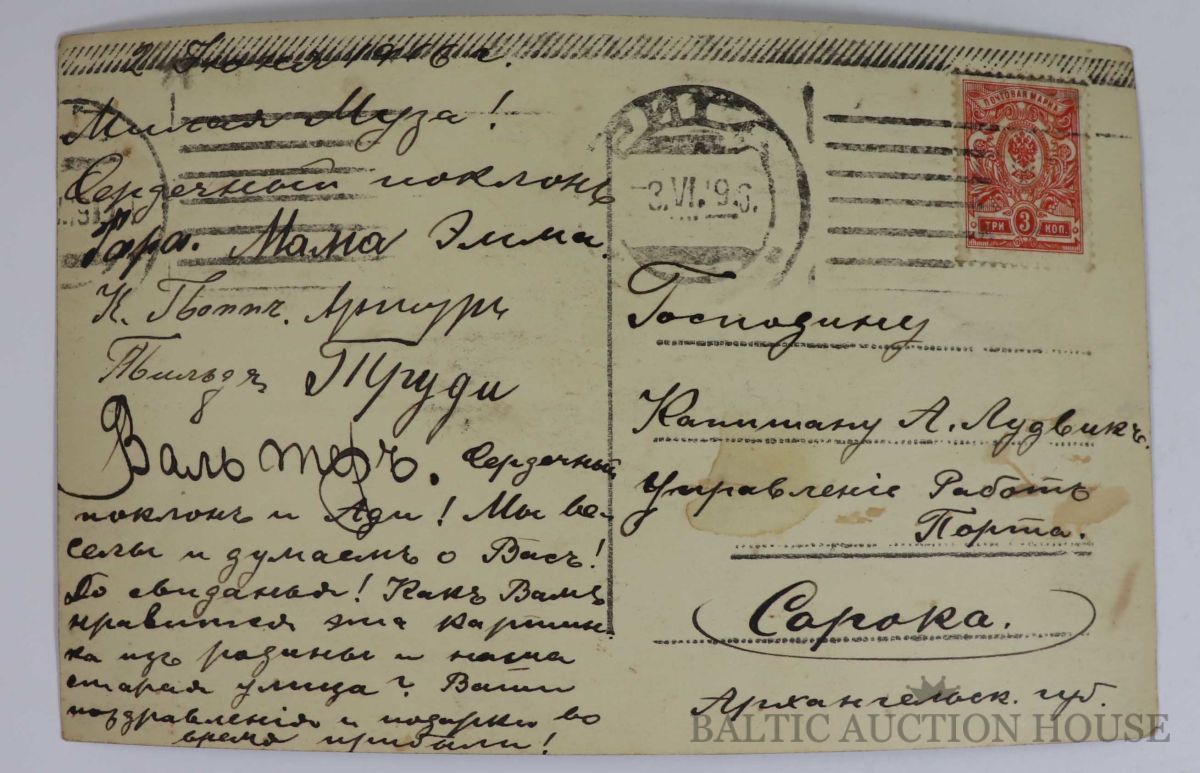 2 Июня 1916 г.
Милая Муза!
Сердечный поклонъ
Мама Эмма.
К. Артуръ
Тильда Труди
Вальтеръ. Сердечный
поклонъ и Ади! Мы ве-
селы и думаемъ о Васъ!
До свиданья! Какъ Вамъ
нравится эта картин-
ка изъ родины и наша
старая улица? Ваши
поздравленія и подарки во
время прибыли!
3.VI.9.6.
ПОЧТОВАЯ МАРКА
ТРИ 3 КОП.
Господину
Капитану А. Лудвикъ.
Управленіе Работъ
Порта.
Сорока.
Архангельск. губ.
BALTIC AUCTION HOUSE